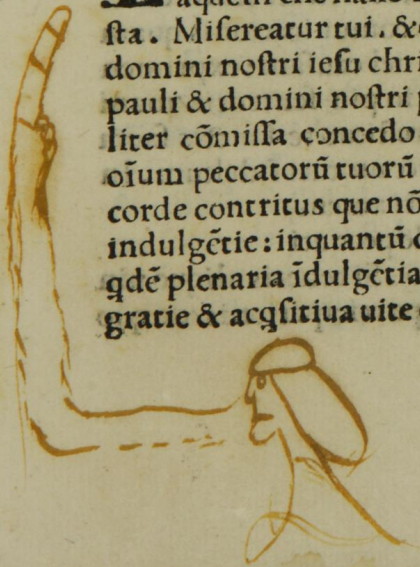 sta. Misereatur tui. &
domini nostri iesu chri
pauli & domini nostri
liter cōmissa concedo
oīum peccatorū tuorū
corde contritus que nō
indulgētie: inquantū
qdē plenaria īdulgētia
gratie & acqsitiua uite